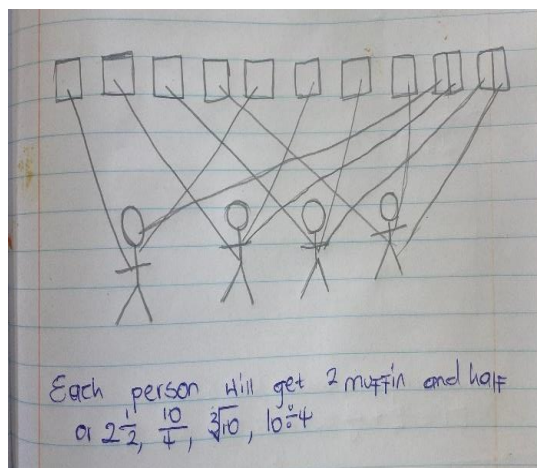 Each person will get 2 muffin and half
or 2 1/2, 10/4, ∛10, 10÷4